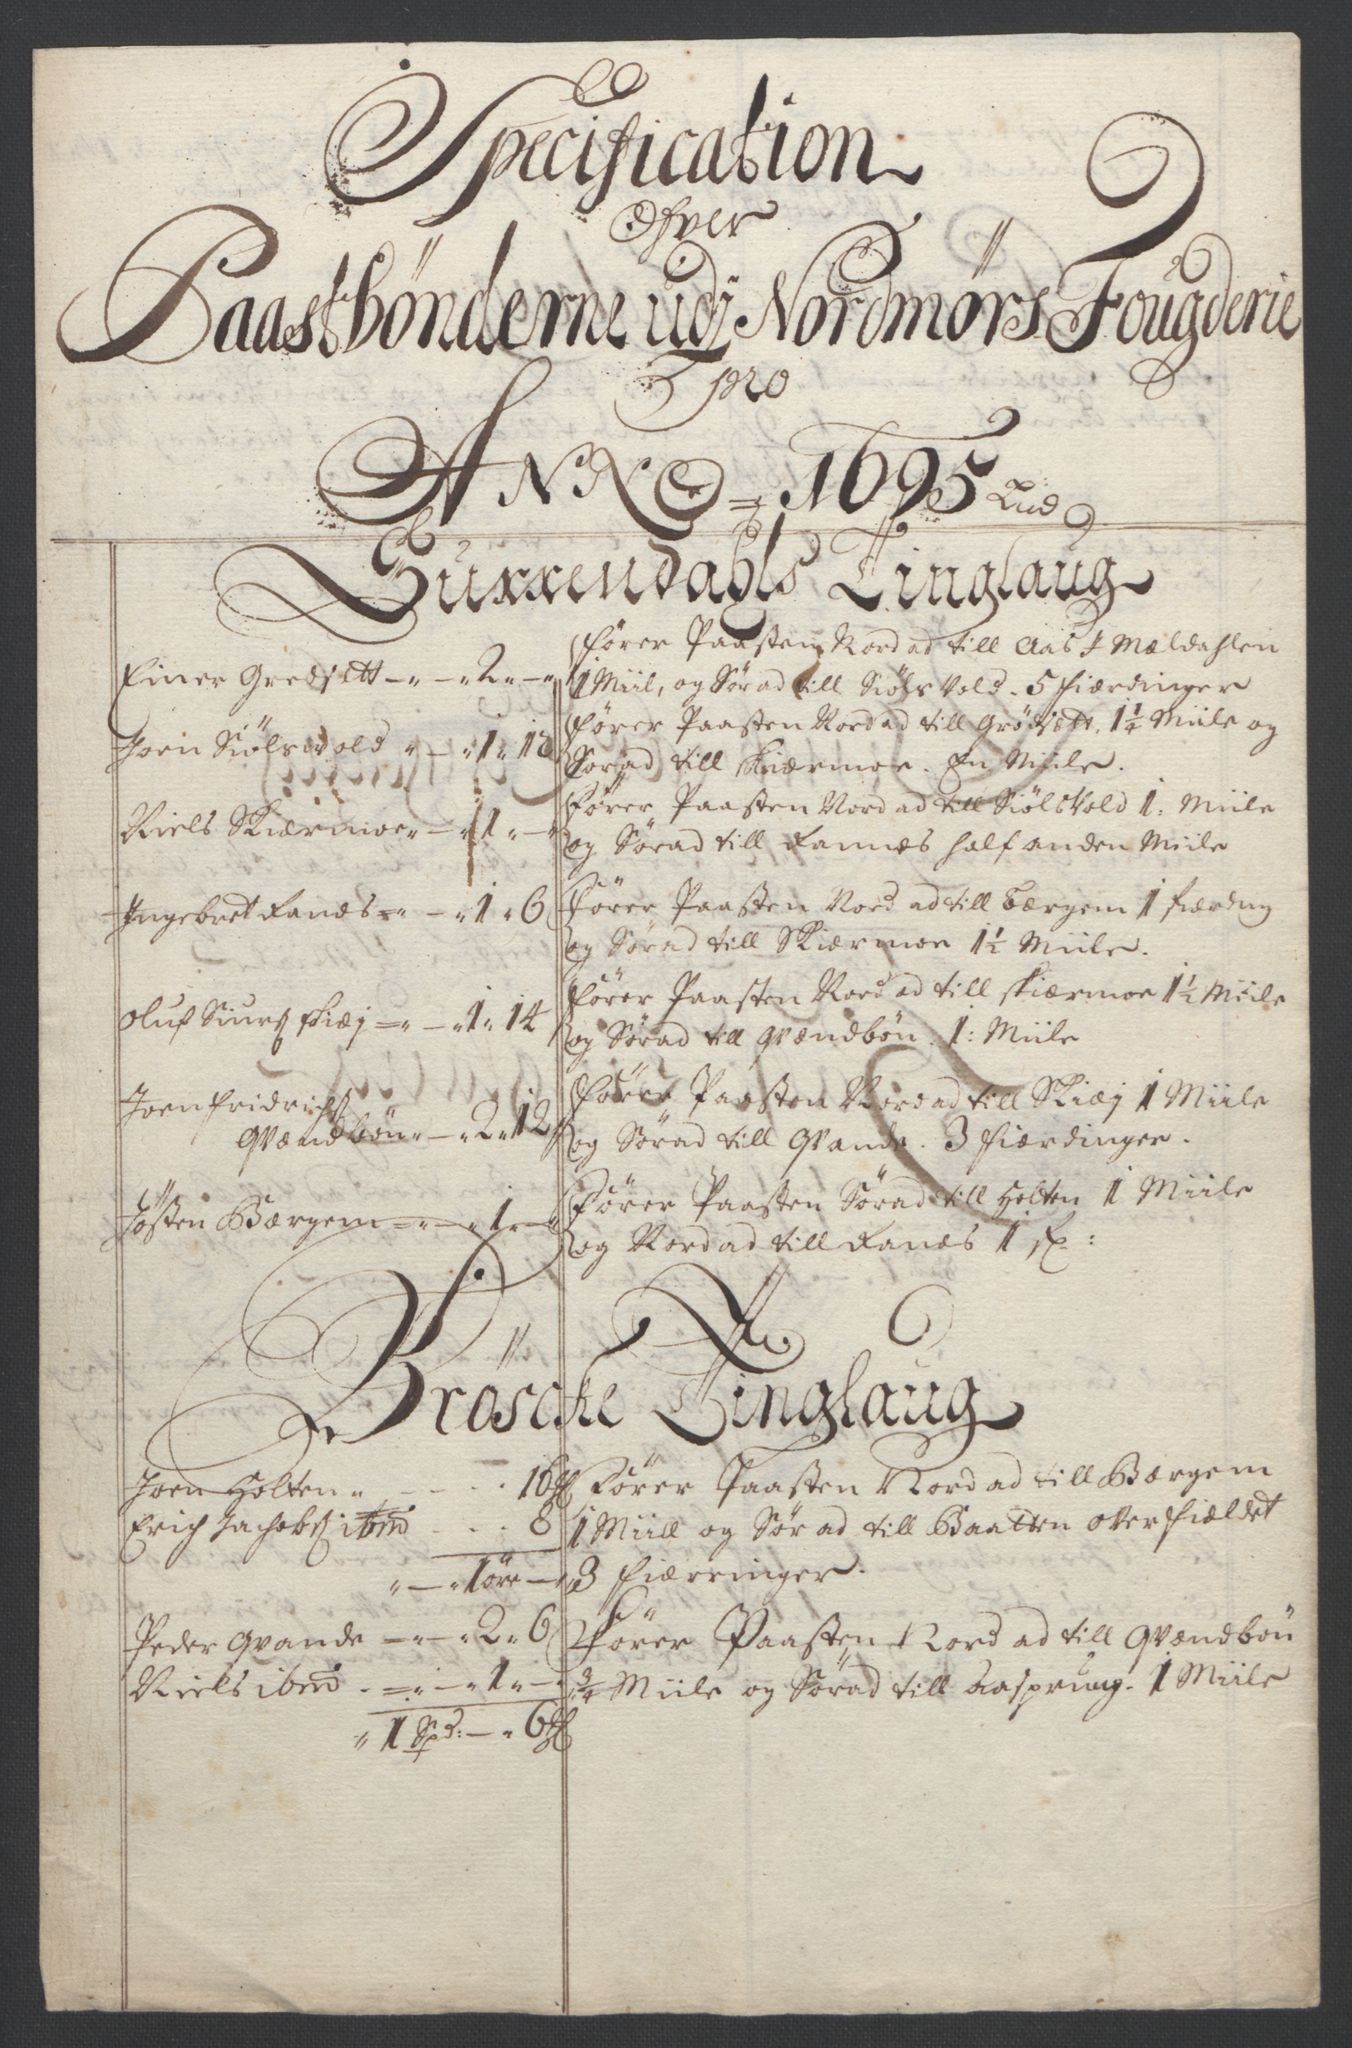 Specification
Ofver
Paastbønderne udj Nordmørs Fougderie
pro
ANNO 1695
Surrendahls Tinglaug
Einer Gredsett - 2 - Fører Paasten Nord ad till Aas i Mældahlen
1 Miil, og Sør ad till Siølsvold. 5 fierdinger
Joen Siølsvold - 1 - 18 Fører Paasten Nord ad till Grødsett. 1 1/4 Miile og
Sør ad till Skiærmoe. En Miile.
Niels Skiærmoe - 1 - Fører Paasten Nord ad till Siølsvold 1: Miile
og Sør ad till Fannæs half anden Miile
Ingebret Fanæs - 1 - 6 Fører Paasten Nord ad till Bærgem 1 fiærding
og Sør ad till Skiærmoe 1 1/2 Miile.
Oluf Siurs Skiæj - 1 - 14 Fører Paasten Nord ad till Skiærmoe 1 1/2 Miile
og Sør ad till Qvændbøn. 1: Miile
Joen Fridrichs
Qvændbøn - 2 - 12 Fører Paasten Nord ad till Skiæj 1 Miile
og Sør ad till Qvande. 3 fiærdinger.
Jøsten Bærgem - 1 - Fører Paasten Sør ad till Holten 1 Miile
og Nord ad till Fanæs 1 f:
Brøscke Tinglaug
Joen Holten - 16 Fører Paasten Nord ad till Bærgem
Erich Jachobs ibid 8 1 Miill og Sør ad till Baatten over fieldet
1 øre - 3 fiærringer.
Peder Qvande - 2 - 6 Fører Paasten Nord ad till Qvændbøn
Niels ibid - 1 - 3/4 Miile og Sør ad till Aasprung. 1 Miile
1 Spd: - 6